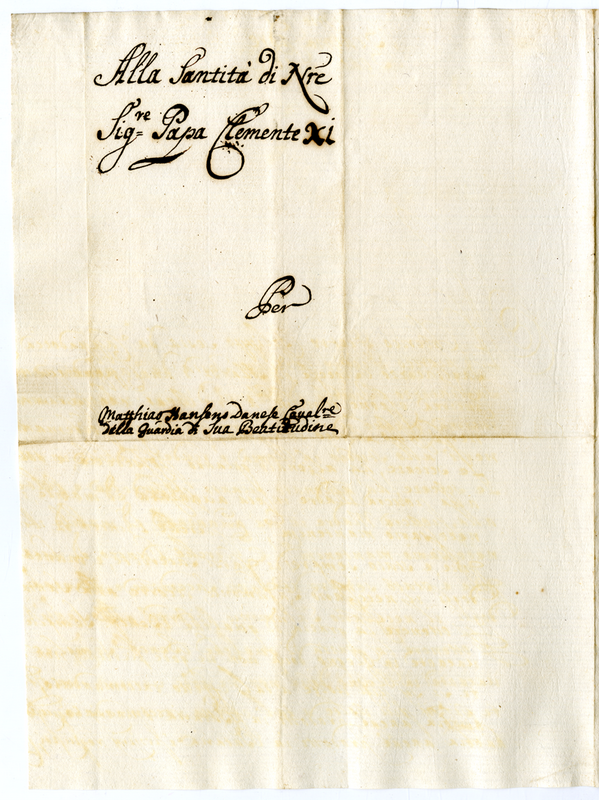 Alla Santità di Nre
Sigre Papa Clemente XI
Per
Matthias Hansens Danese Cavalre
della Guardia di Sua Beatitudine